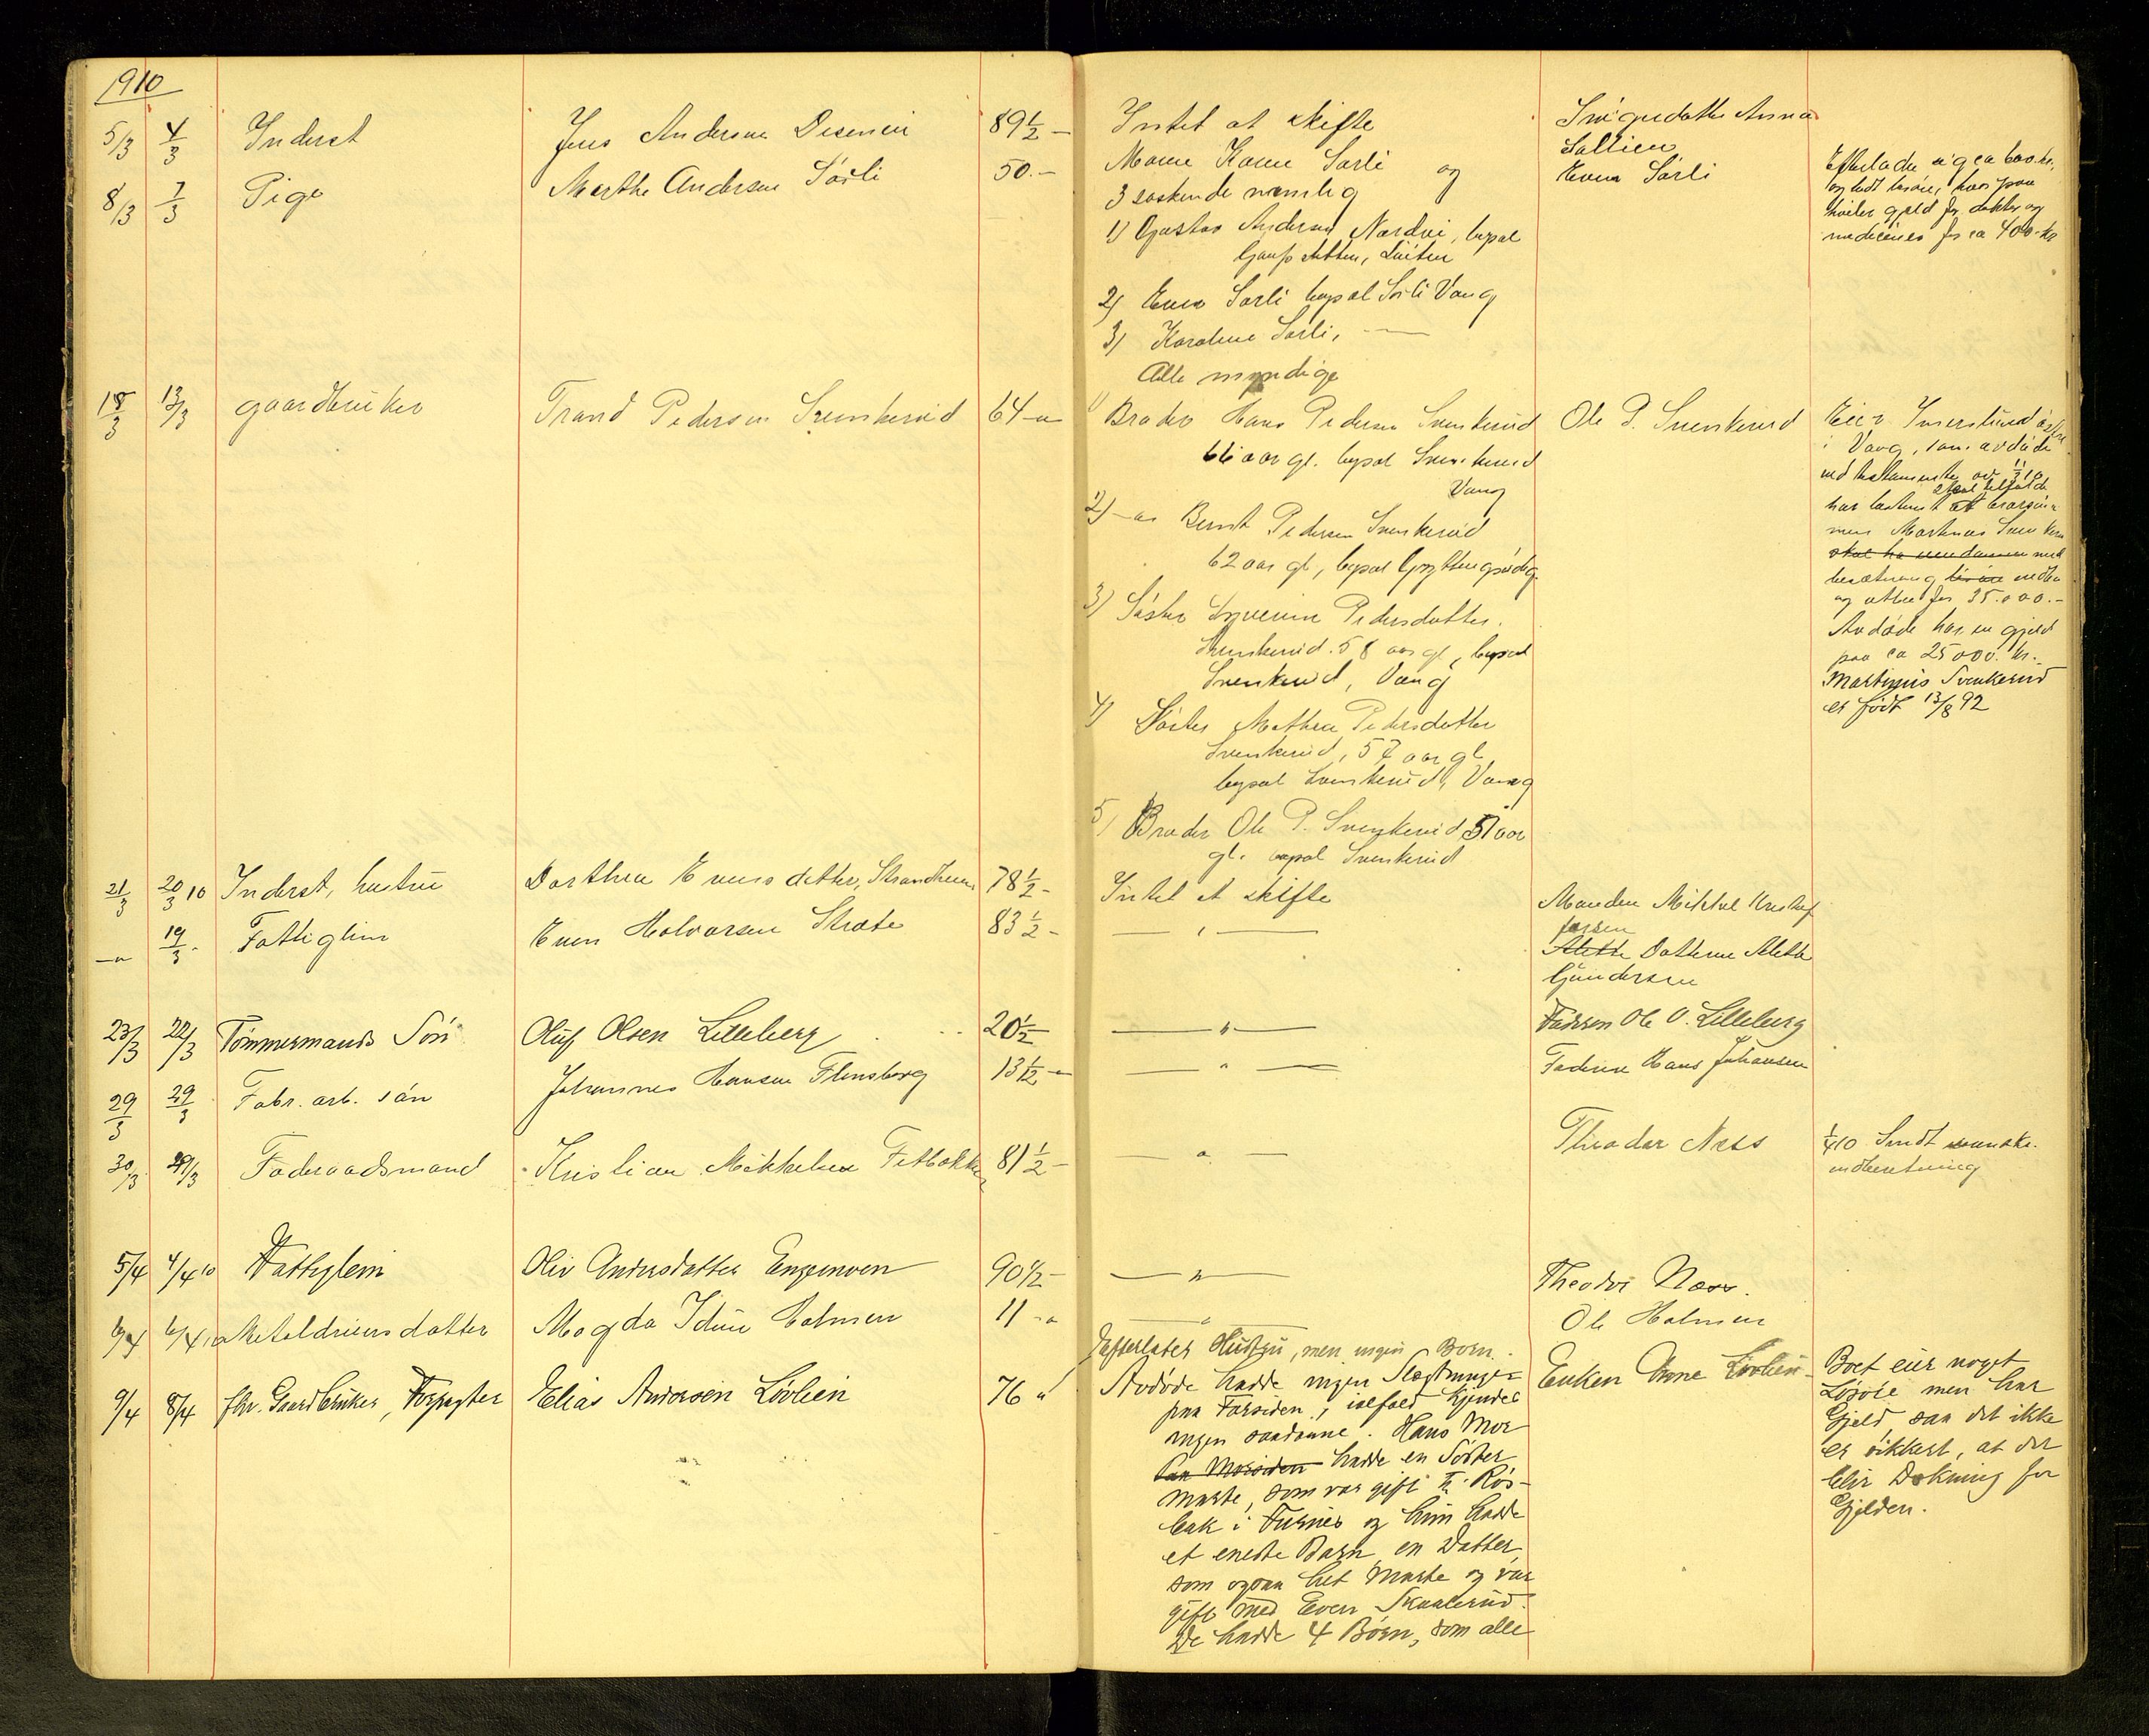 1910
5/3 4/3 Inderst Jens Andersen Disenein 89½ - Intet at skifte Svigerdatter Anna
Sallien
8/3 7/3 Pige Marthe Andersen Sørli 50.- Moren Karen Sørli og Even Sørli Efterlader sig ca 600 kr.
3 søskende nemlig og lidt løsøre, hvorpaa
hviler gjeld for doktor og
1) Gustav Andersen Nordvi, bopæl medicines for ca 400 kr
Løiten
2) Even Sørli bopæl Sørli Vang
3) Karoline Sørli, —
Alle myndige
18/3 13/3 gaardbruker Trond Pedersen Svenkerud 64 - Broder Hans Pedersen Svenkerud Ole P. Svenkerud Eier Imerslund østre
66 aar gl. bopæl Svenkerud i Vang, som avdøde
Vang ved testamente av 11/3 10
skal tilfalde
2) - Bernt Pedersen Svenkerud har bestemt at brorsøn
62 aar gl, bopæl men Martinus Svenkerud
skal ha eiendommen med
besætning løsøre
3) Søster Syverine Pedersdatter og for 35.000.-
Svenkerud. 58 aar gl, bopæl Avdøde har en gjeld
Svenkerud, Vang paa ca 25000. kr.
Martinus Svenkerud
4) Søster Mathea Pedersdatter er født 13/8 92
Svenkerud, 57 aar gl
bopæl Svenkerud, Vang
5) Broder Ole P. Svenkerud 51 aar
gl. bopæl Svenkerud
21/3 20/3 10 Inderst, hustru Dorthea Evensdatter, Strandheim 78½ - Intet at skifte Manden Mikkel Kristof
fersen
-"- 19/3 Fattiglem Even Halvorsen Stræte 83½ - —"— Alette Datteren Alette
Gundersen
23/3 22/3 Tømmermands Søn Oluf Olsen Lilleberg 20½ —"— Faderen Ole O. Lilleberg
29/3 29/3 Fabr. arb. søn Johannes Hansen Flensborg 13½ - —"— Faderen Hans Johansen
30/3 29/3 Føderaadsmand Kristian Mikkelsen Fetbakken 81½ - —"— Theodor Ness 1/4 10 Sendt
indberetning
5/4 4/4 10 Fattiglem Oliv Andersdatter Engemoen 90½ - —"— Theodor Næss.
6/4 6/4 10 Metaldreiers datter Magda Idun Holmen 11 -" —"— Ole Holmen
9/4 8/4 fhv. Gaardbruker, Forpagter Elias Andersen Løvlien 76 " Efterlater Hustru, men ingen Børn. Enken Anne Løvlien Boet eier noget
Avdøde hadde ingen Slegtninger Løsøre men har
paa Farsiden, ialfald kjendes Gjeld, saa det ikke
ingen saadanne. Hans Mor er sikkert, at der
paa Morsiden hadde en Søster blir Dekning for
Marte, som var gift i Røs- Gjelden.
bak i Furnes og hun hadde
et eneste Barn, en Datter,
som ogsaa het Marte og var
gift med Even Skaalerud.
De hadde 4 Børn, som alle